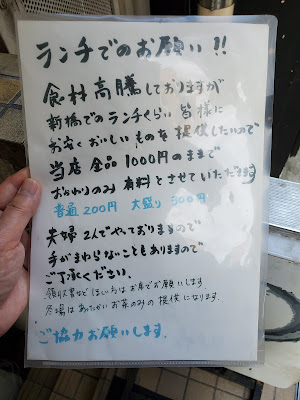 ランチでのお願い!!
食材高騰しておりますが
新橋でのランチくらい皆様に
お安くおいしいものを提供したいので
当店 全品1000円のままで
おかわりのみ有料とさせていただきます
普通200円 大盛り300円
夫婦2人でやっておりますので
手がまわらないこともありますので
ご了承ください。
領収書など ほしい方はお席でお願いします
冬場はあたたかいお茶のみの提供になります。
ご協力お願いします。